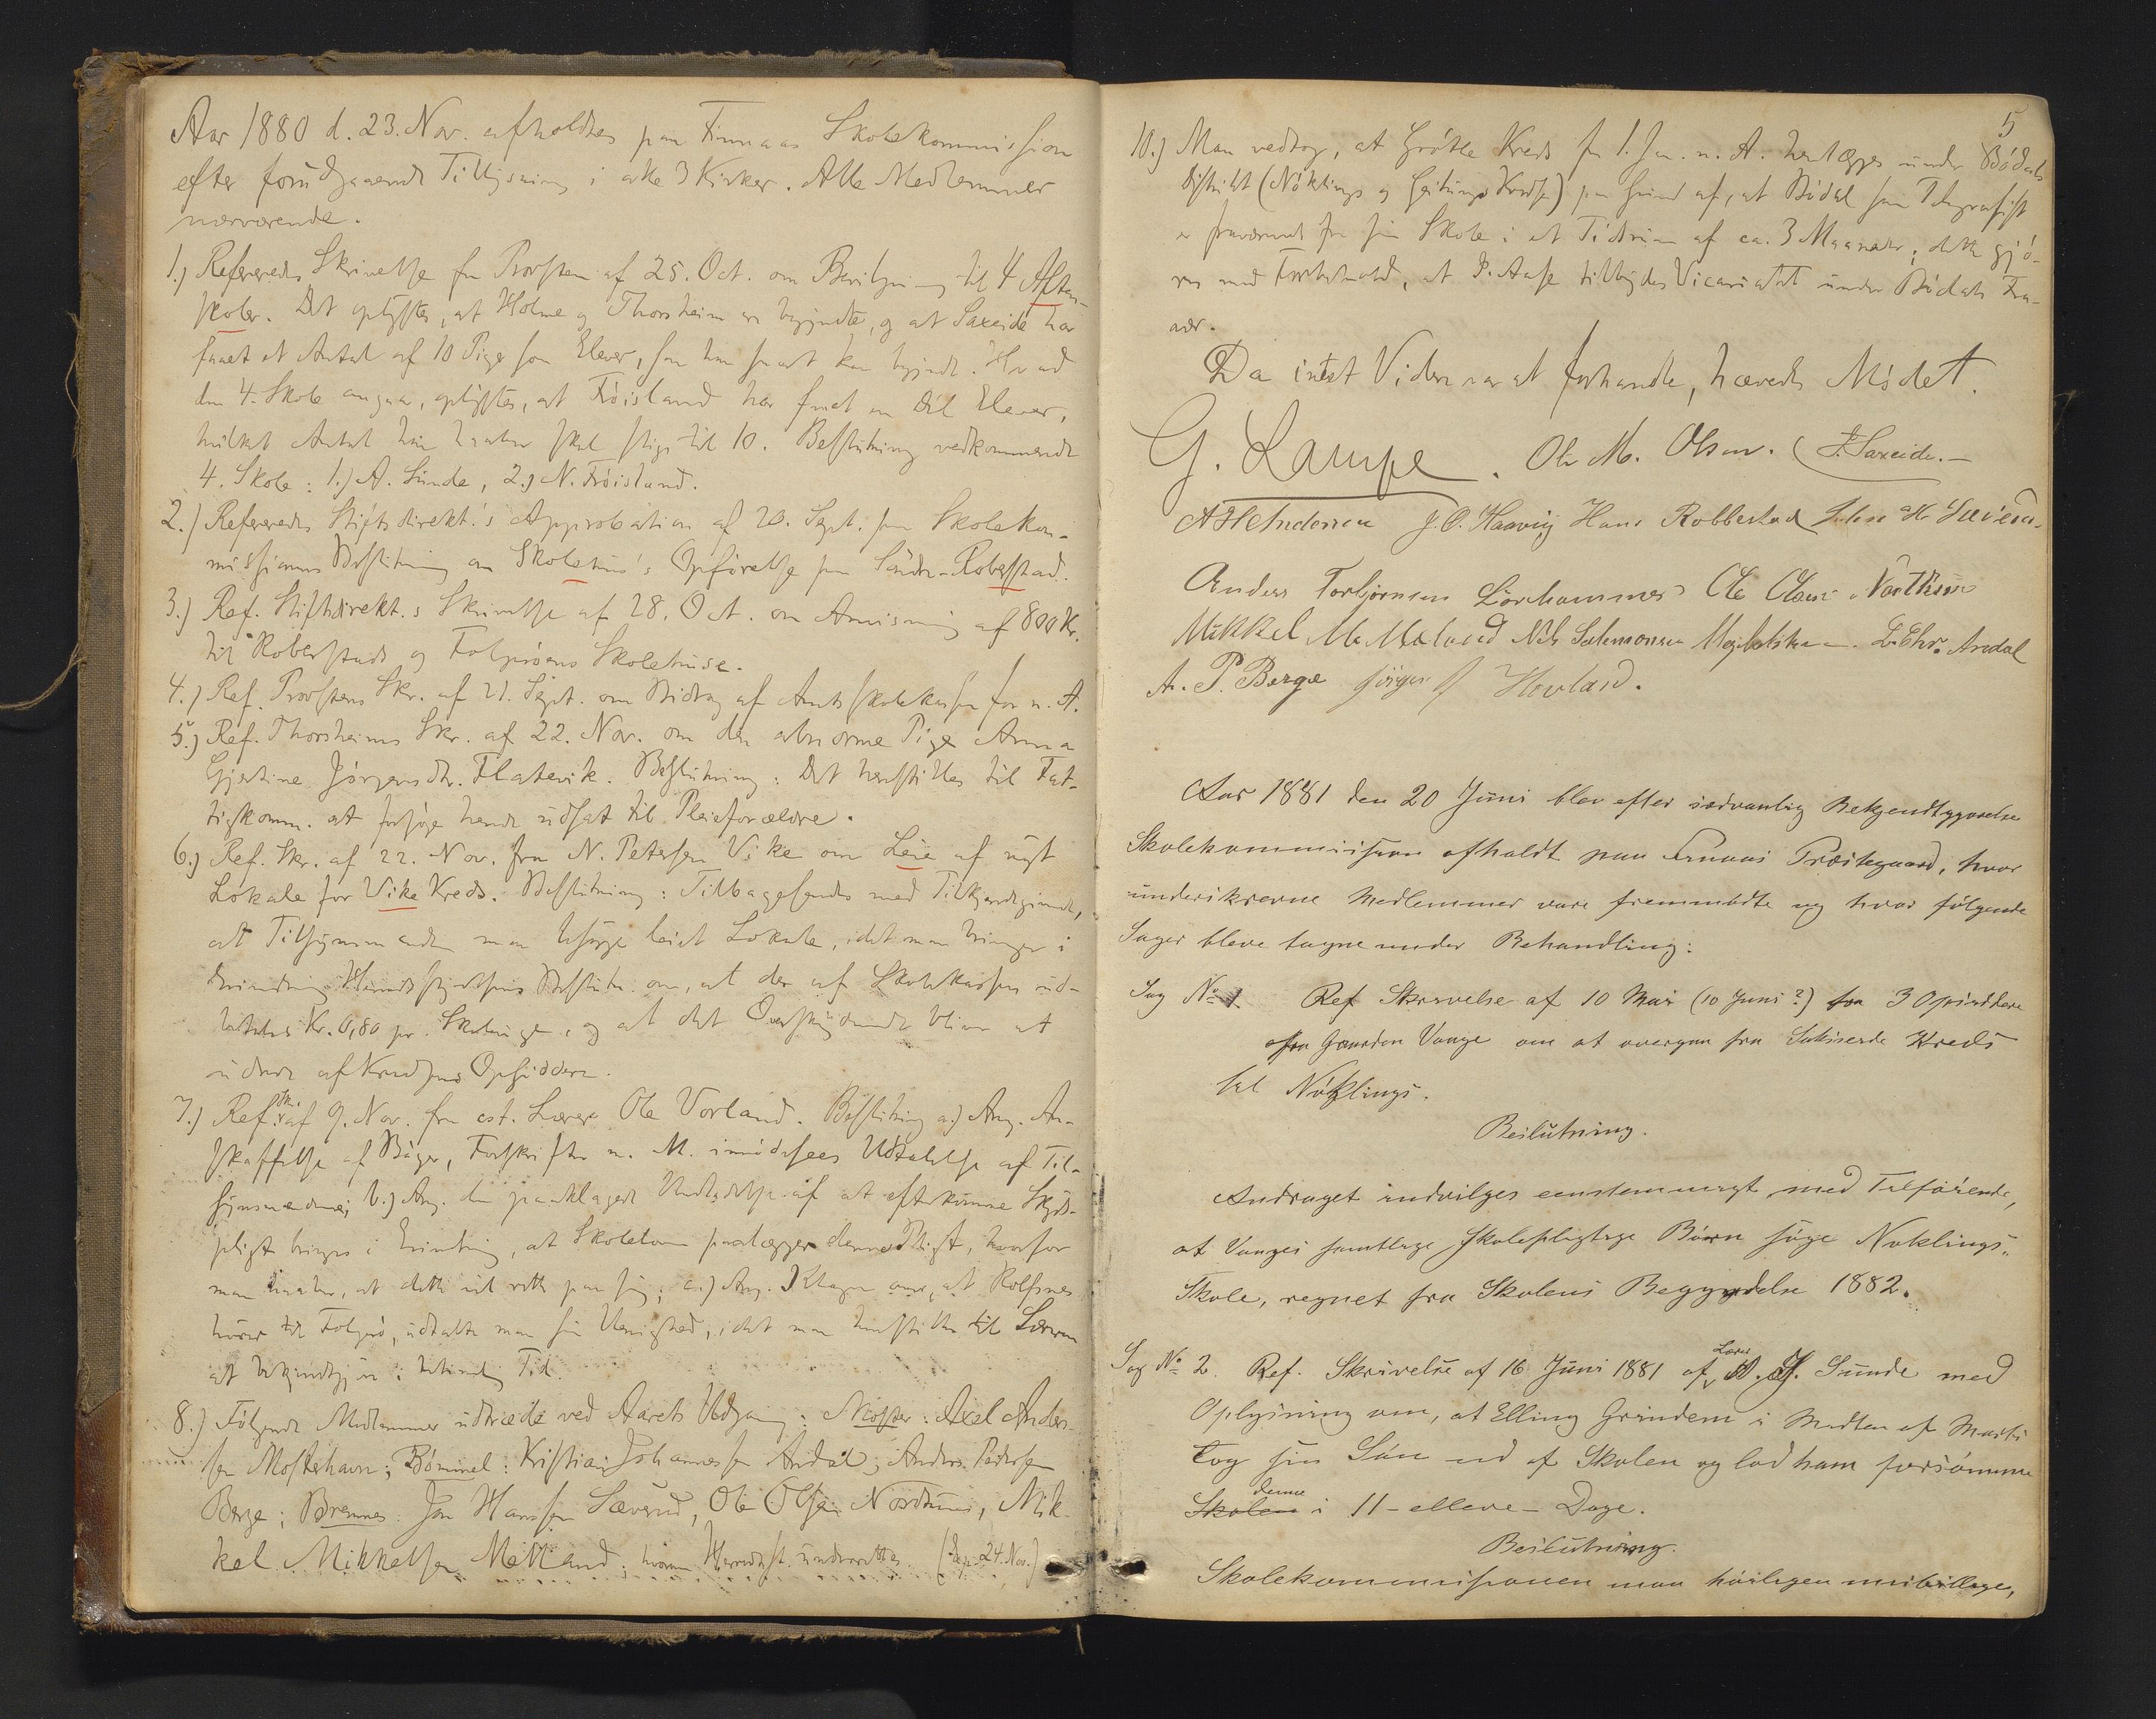 Aar 1880 d. 23. Nov. afholdtes paa Finnaas Skolekommission
efter forudgaaende Tillysning i alle 3 Kirker. Alle Medlemmer
nærværende.
1.) Refereredes Skrivelse fra Provsten af 25. Oct. om Bevilgning til 4 Aften-
skoler. Det oplystes, at Holme og Thorsheim er begyndte, og at Saxeide har
faaet et Antal af 10 Pige som Elever, som han snart kan begynde. Hvad
den 4. Skole angaar, oplystes, at Frøisland har faaet en Del Elever,
hvilket Antal han haaber skal stige til 10. Beslutning vedkommende
4. Skole: 1.) A. Sunde, 2.) N. Frøisland.
2.) Refereredes Stiftsdirekt.'s Approbation af 20. Sept. paa Skolekom-
missionens Beslutning om Skolehus's Opførelse paa Søndre-Roberstad.
3.) Ref. Stiftsdirekt.s Skrivelse af 28. Oct. om Anvisning af 800 Kr.
til Roberstads og Folgerøens Skolehuse.
4.) Ref. Provstens Skr. af 21. Sept. om Bidrag af Amtsskolekassen for n. A.
5.) Ref. Thorsheims Skr. af 22. Nov. om den abnorme Pige Anna
Gjertine Jørgensdtr. Flatevik. Beslutning: Det henstilles til Fat-
tigkomm. at forsøge hende udsat til Pleieforældre.
6.) Ref. Skr. af 22. Nov. fra N. Petersen Vike om Leie af nyt
Lokale for Vike Kreds. Beslutning: Tilbagesendes med Tilkjendegivende,
at Tilsynsmanden maa besørge leiet Lokale, idet man bringer i
Erindring Herredsstyrelsens Beslutn. om, at der af Skolekassen ud-
betales Kr. 0,80 pr. Skoleuge, og at det Overskydende bliver at
udrede af Kredsens Opsiddere.
7.) Ref. Skr. af 9. Nov. fra cst. Lærer Ole Vorland. Beslutning a.) Ang. An-
skaffelse af Bøger, Forskrifter m. M. imødesees Udtalelse af Til-
synsmændene; b.) Ang. den paaklagede Undladelse af at efterkomme Skyds-
pligt bringes i Erindring, at Skoleloven paalægger denne Pligt, hvorfor
man haaber, at dette vil rette paa sig; c.) Ang. Klagen over, at Rolfsnes
hører til Folgerø, udtalte man sin Uenighed, idet man henstiller til Læreren
at bekjendtgjøre i betimelig Tid.
8.) Følgende Medlemmer udtræde ved Aarets Udgang: Moster: Axel Ander-
sen Mosterhavn; Bømmel: Kristian Johannessen Ardal; Anders Pedersen
Berge; Bremnes: Jon Hanssen Sæverud, Ole Olsen Nordtun, Mik-
kel Mikkelsen Mæland, hvorom Herredsst. underrettes. (Exp. 24. Nov.)
5
10.) Man vedtog, at Grøtle Kreds fra 1. Jan. n. A. henlægges under Bødals
Distrikt (Nøklings og Geitungs Kredse) paa Grund af, at Bødal som Telegrafist
er fraværende fra sin Skole i et Tidsrum af ca. 3 Maaneder; dette gjø-
res med Forbehold, at P. Aase tilbydes Vicariatet under Bødals Fra-
vær.
Da intet Videre var at forhandle, hævedes Mødet.
G. Lampe. Ole M. Olsen. J. Saxeide.
A H Andersen J. O. Haavig Hans Robbestad John H Sæverud
Anders Torbjørnsen Lönhammer Ole Olsen Nordtun
Mikkel M. Mæland Nils Salemonsen L. Chr. Ardal
A. P. Berge Jörgen J Hovland.
Aar 1881 den 20 Juni blev efter sædvanlig Bekjendtgjørelse
Skolekommission afholdt paa Finnaas Præstegaard, hvor
underskrevne Medlemmer vare fremmødte og hvor følgende
Sager bleve tagne under Behandling:
Sag No 1. Ref Skrivelse af 10 Mai (10 Juni?) fra 3 Opsiddere
paa Gaarden Vange om at overgaa fra Kreds
til Nøklings.
Beslutning.
Andraget indvilges eenstemmigt med Tilføiende,
at Vanges samtlige skolepligtige Børn søge Nøklings
Skole, regnet fra Skolens Begyndelse 1882.
Sag No 2. Ref. Skrivelse af 16 Juni 1881 af Lærer A. J. Sunde med
Oplysning om, at Elling Grindem i Midten af Marts
tog sin Søn ud af Skolen og lod ham forsømme
Skolen denne i 11 - elleve - Dage.
Beslutning.
Skolekommissionen maa høiligen misbillige,